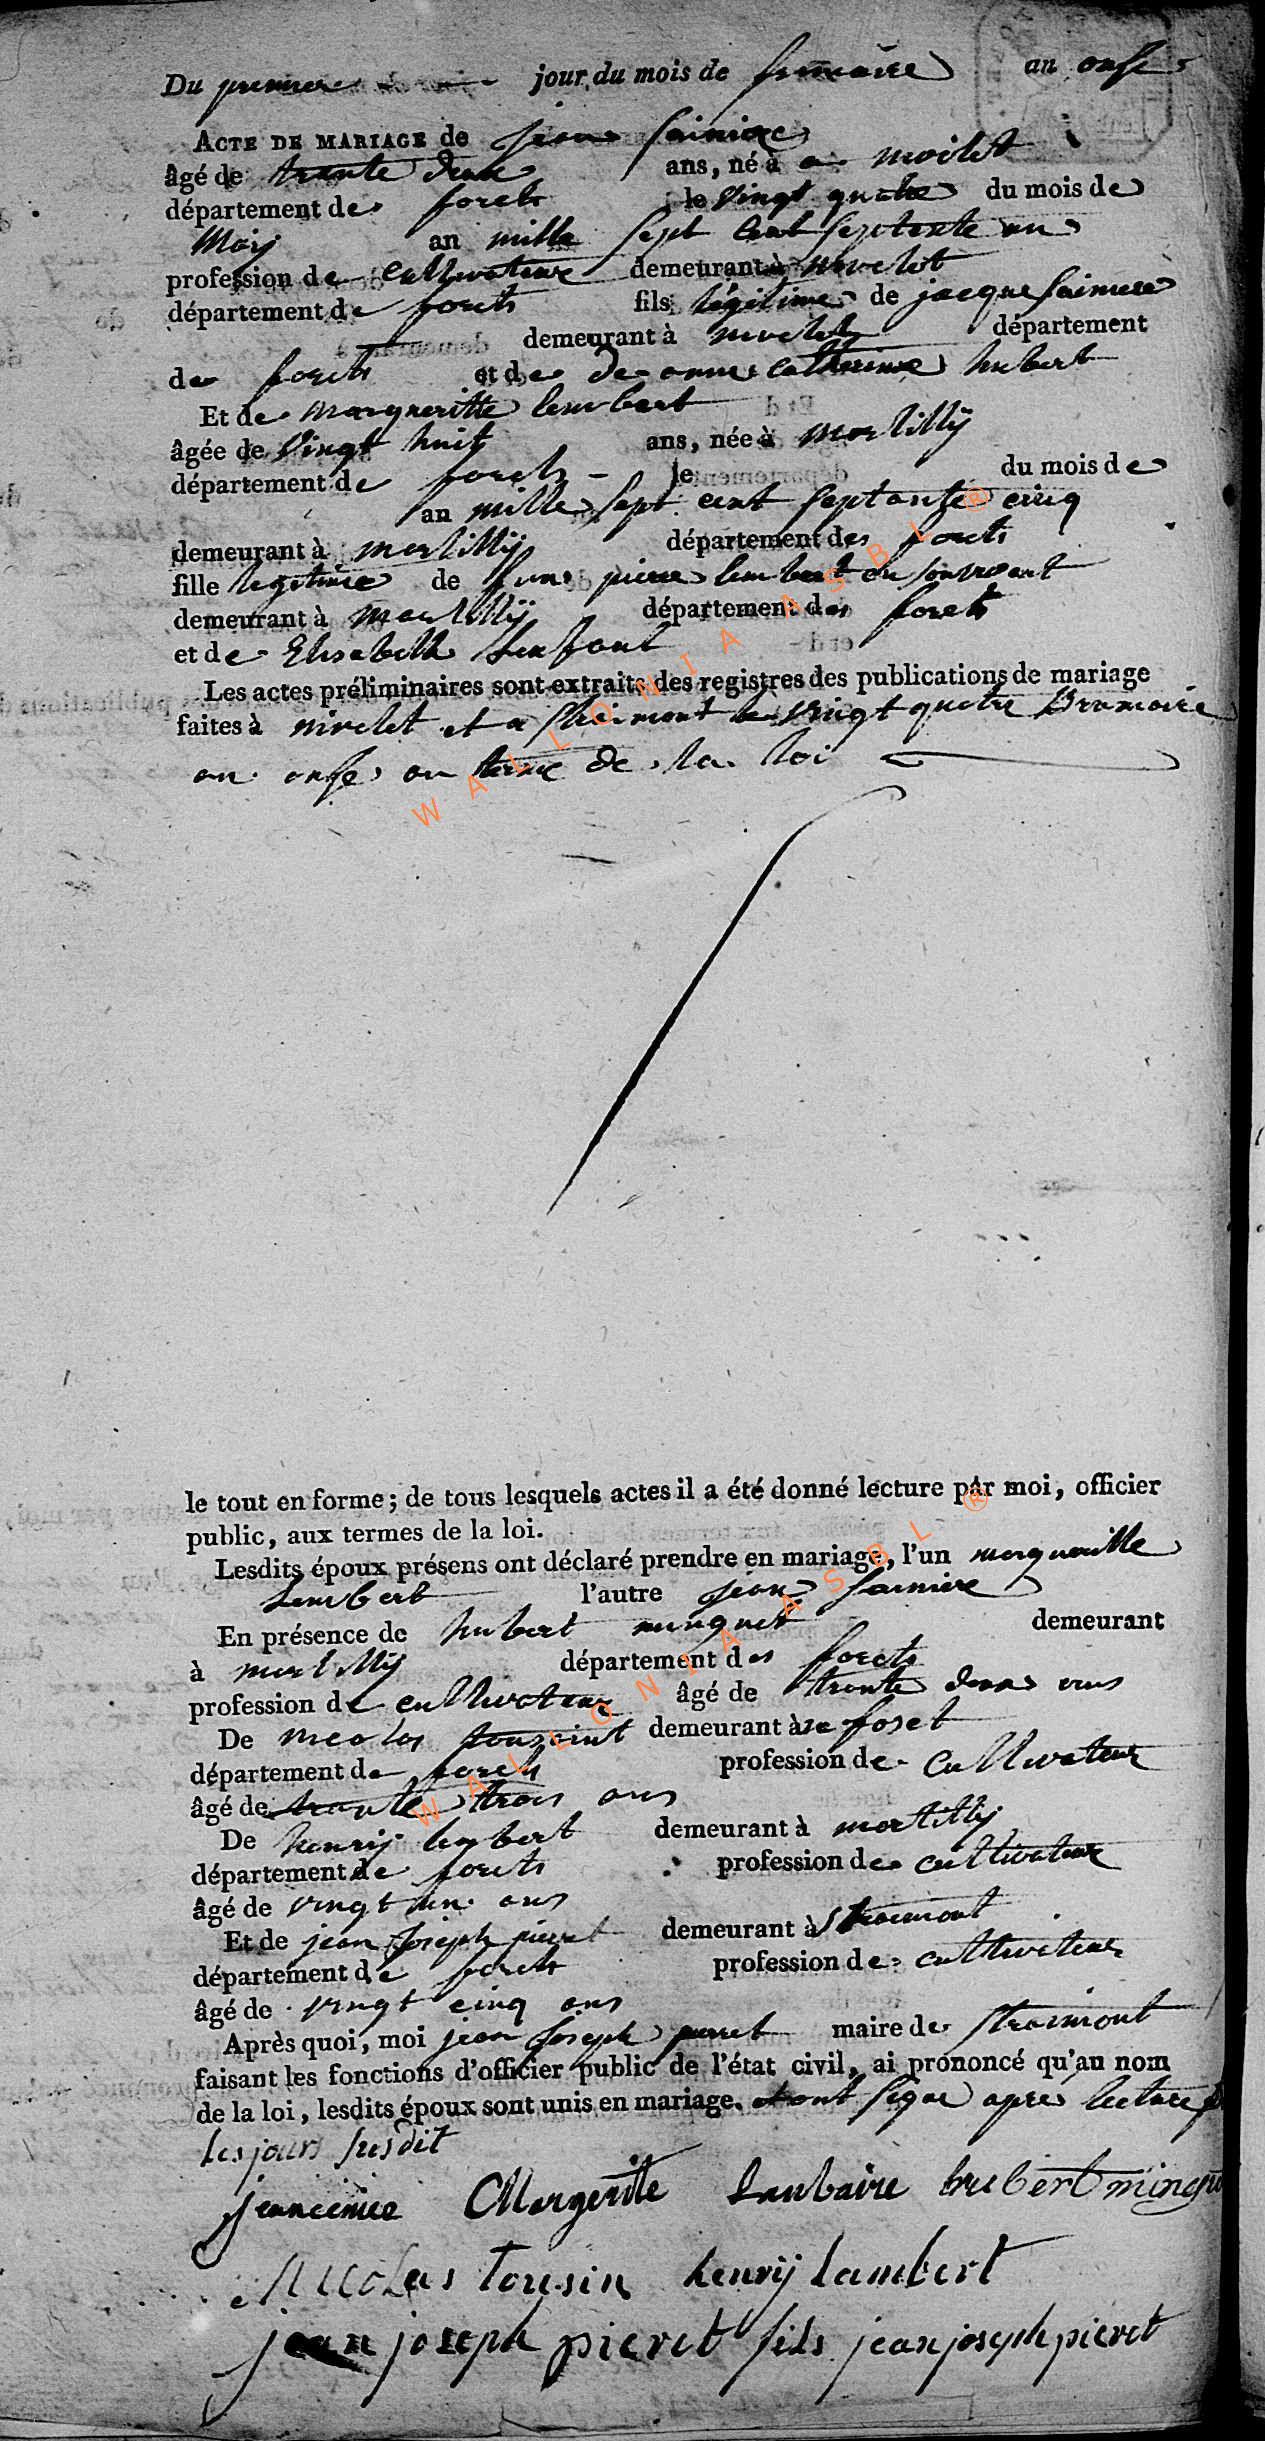 Du premier jour du mois de frimaire an onse
ACTE DE MARIAGE de jean Sainiere
âgé de trante deux ans, né à nivelet
département des forets le vingt quatre du mois de
May an mille sept cent septente un
profession de cultivateur demeurant à nivelet
département de forets fils légitime de jacque Sainiere
demeurant à nivelet département
des forets et de de anne catherine hubert
Et de margueritte lembert
âgée de vingt huit ans, née à martilly
département de forets le du mois de
an mille sept cent septante cinq
demeurant à martilly département des forets
fille legitime de feux pierre lembert en son vivant
demeurant à martilly département des forets
et de Elisabeth Lenfant
Les actes préliminaires sont extraits des registres des publications de mariage
faites à nivelet et a straimont le vingt quatre Brumaire
an onse au terme de la loi
le tout en forme; de tous lesquels actes il a été donné lecture par moi, officier
public, aux termes de la loi.
Lesdits époux présens ont déclaré prendre en mariage, l'un margueritte
Lembert l'autre jean Sainiere
En présence de hubert minguet demeurant
à martilly département des forets
profession de cultivateur âgé de trante deux ans
De nicolas toussaint demeurant à foset
département de forets profession de cultivateur
âgé de trante trois ans
De henrij lambert demeurant à martilly
département de forets profession de cultivateur
âgé de vingt un ans
Et de jean Joseph pierret demeurant à Straimont
département de forets profession de cultivateur
âgé de vingt cinq ans
Après quoi, moi jean Joseph pierret maire de straimont
faisant les fonctions d'officier public de l'état civil, ai prononcé qu'au nom
de la loi, lesdits époux sont unis en mariage. et ont signe apres lecture
les jours susdit
jean cenice Margerite Lanbaire hubert mingu
Nicolas Tousin henrij lambert
jean joseph pieret fils jean joseph pieret
WALLONIA ASBL ®
WALLONIA ASBL ®